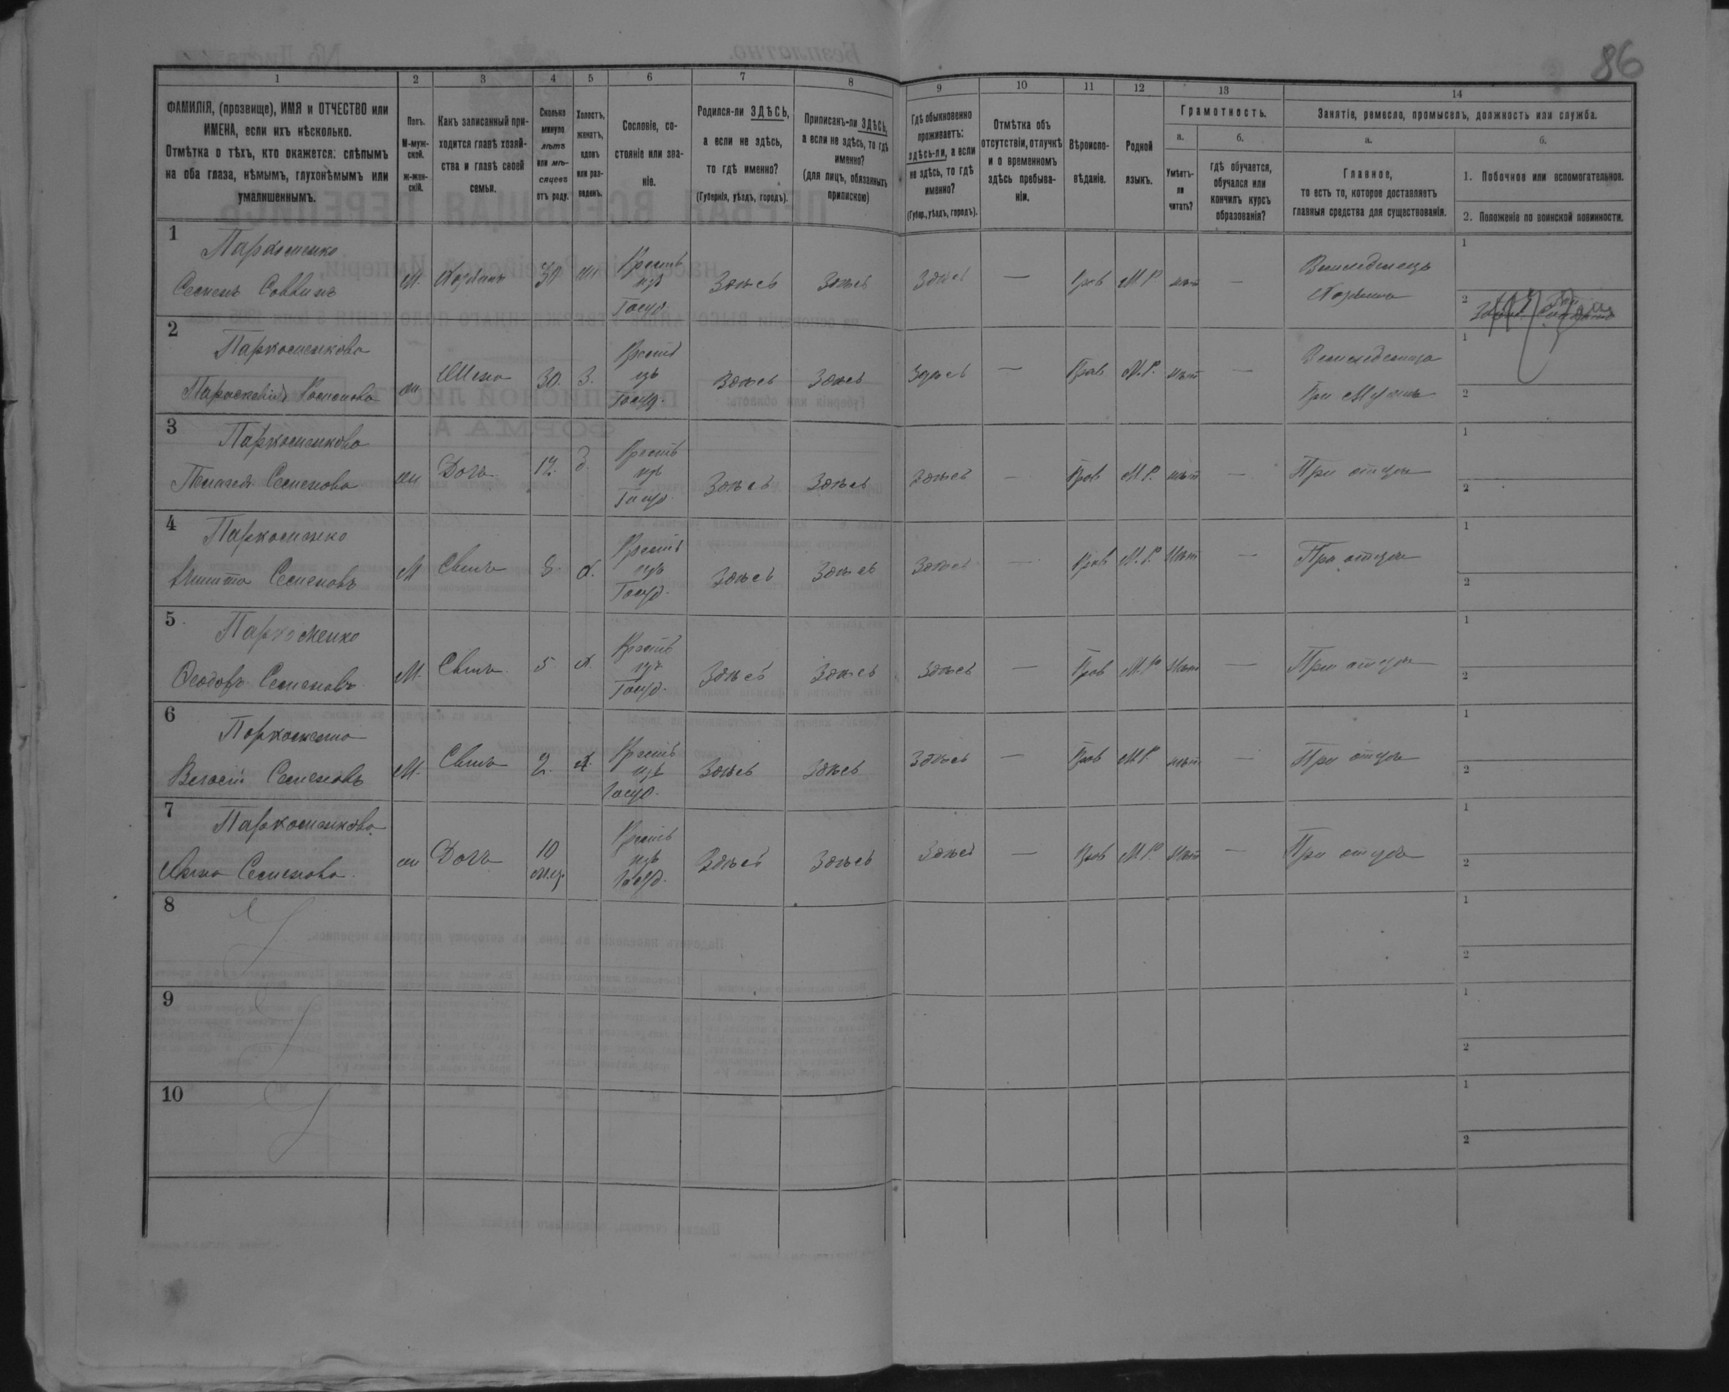 86
1 2 3 4 5 6 7 8 9 10 11 12 13 14
ФАМИЛІЯ, (прозвище), ИМЯ и ОТЧЕСТВО или
ИМЕНА, если ихъ нѣсколько.
Отмѣтка о тѣхъ, кто окажется: слѣпымъ
на оба глаза, нѣмымъ, глухонѣмымъ или
умалишеннымъ.
Полъ.
М-муж-
ской.
Ж-жен-
скій.
Какъ записанный при-
ходится главѣ хозяй-
ства и главѣ своей
семьи.
Сколько
минуло
лѣтъ
или мѣ-
сяцевъ
отъ роду.
Холостъ,
женатъ,
вдовъ
или раз-
веденъ.
Сословіе, со-
стояніе или зва-
ніе.
Родился-ли ЗДѢСЬ,
а если не здѣсь,
то гдѣ именно?
(Губернія, уѣздъ, городъ).
Приписанъ-ли ЗДѢСЬ,
а если не здѣсь, то гдѣ
именно?
(для лицъ, обязанныхъ
припискою)
Гдѣ обыкновенно
проживаетъ:
здѣсь-ли, а если
не здѣсь, то гдѣ
именно?
(Губер., уѣздъ, городъ).
Отмѣтка объ
отсутствіи, отлучкѣ
и о временномъ
здѣсь пребыва-
ніи.
Вѣроиспо-
вѣданіе.
Родной
языкъ.
Грамотность.
а.
Умѣетъ-
ли
читать?
б.
гдѣ обучается,
обучался или
кончилъ курсъ
образованія?
Занятіе, ремесло, промыселъ, должность или служба.
а.
Главное,
то есть то, которое доставляетъ
главныя средства для существованія.
б.
1. Побочное или вспомогательное.
2. Положеніе по воинской повинности.
1
Пархоменко
Семенъ Саввинъ
М. Хозяинъ Крестъ изъ Госуд. Здѣсь Здѣсь Здѣсь — Прав М.Р. нѣт —
Земледѣлецъ
Хозяинъ
1
2
2
Пархоменкова
ж Жена 30. З. Крестъ изъ Госуд. Здѣсь Здѣсь Здѣсь — Прав М.Р. нѣт —
Земледелица
При мужѣ
1
2
3
Пархоменкова
Пелагея Семенова
ж Дочь Крестъ изъ Госуд. Здѣсь Здѣсь Здѣсь — Прав М.Р. нѣт — При отцѣ
1
2
4
Пархоменко
Никита Семеновъ
М Сынъ 8 х. Крестъ изъ Госуд. Здѣсь Здѣсь Здѣсь — Прав М.Р. нѣт — При отцѣ
1
2
5
Пархоменко
Семеновъ
М. Сынъ 5 х. Крестъ изъ Госуд. Здѣсь Здѣсь Здѣсь — Прав М.Р. нѣт — При отцѣ
1
2
6
Пархоменко
Семеновъ
М. Сынъ 2. х. Крестъ изъ Госуд. Здѣсь Здѣсь Здѣсь — Прав М.Р. нѣт — При отцѣ
1
2
7
Пархоменкова
Анна Семенова
ж Дочь 10 мец. Крестъ изъ Госуд. Здѣсь Здѣсь Здѣсь — Прав М.Р. нѣт — При отцѣ
1
2
8
1
2
9
1
2
10
1
2